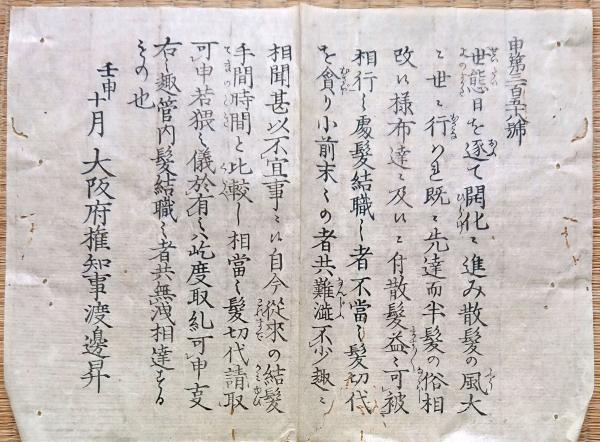 申第三百五十六號
世態日を逐て開化ニ進み散髪の風大
ニ世ニ行ハれ既ニ先達而半髪の俗相
改い様布達ニ及いニ付散髪益ニ可被
相行之處髪結職之者不當之髪切代
を貪り小前末々の者共難澁不少趣ニ
相聞甚以不宜事ニい自今從來の結髪
手間時間と比較し相當之髪切代請取
可申若猥之儀於有之ハ屹度取糺可申支
右之趣管内髪結職之者共無洩相達する
もの也
壬申十月 大阪府権知事渡邊昇